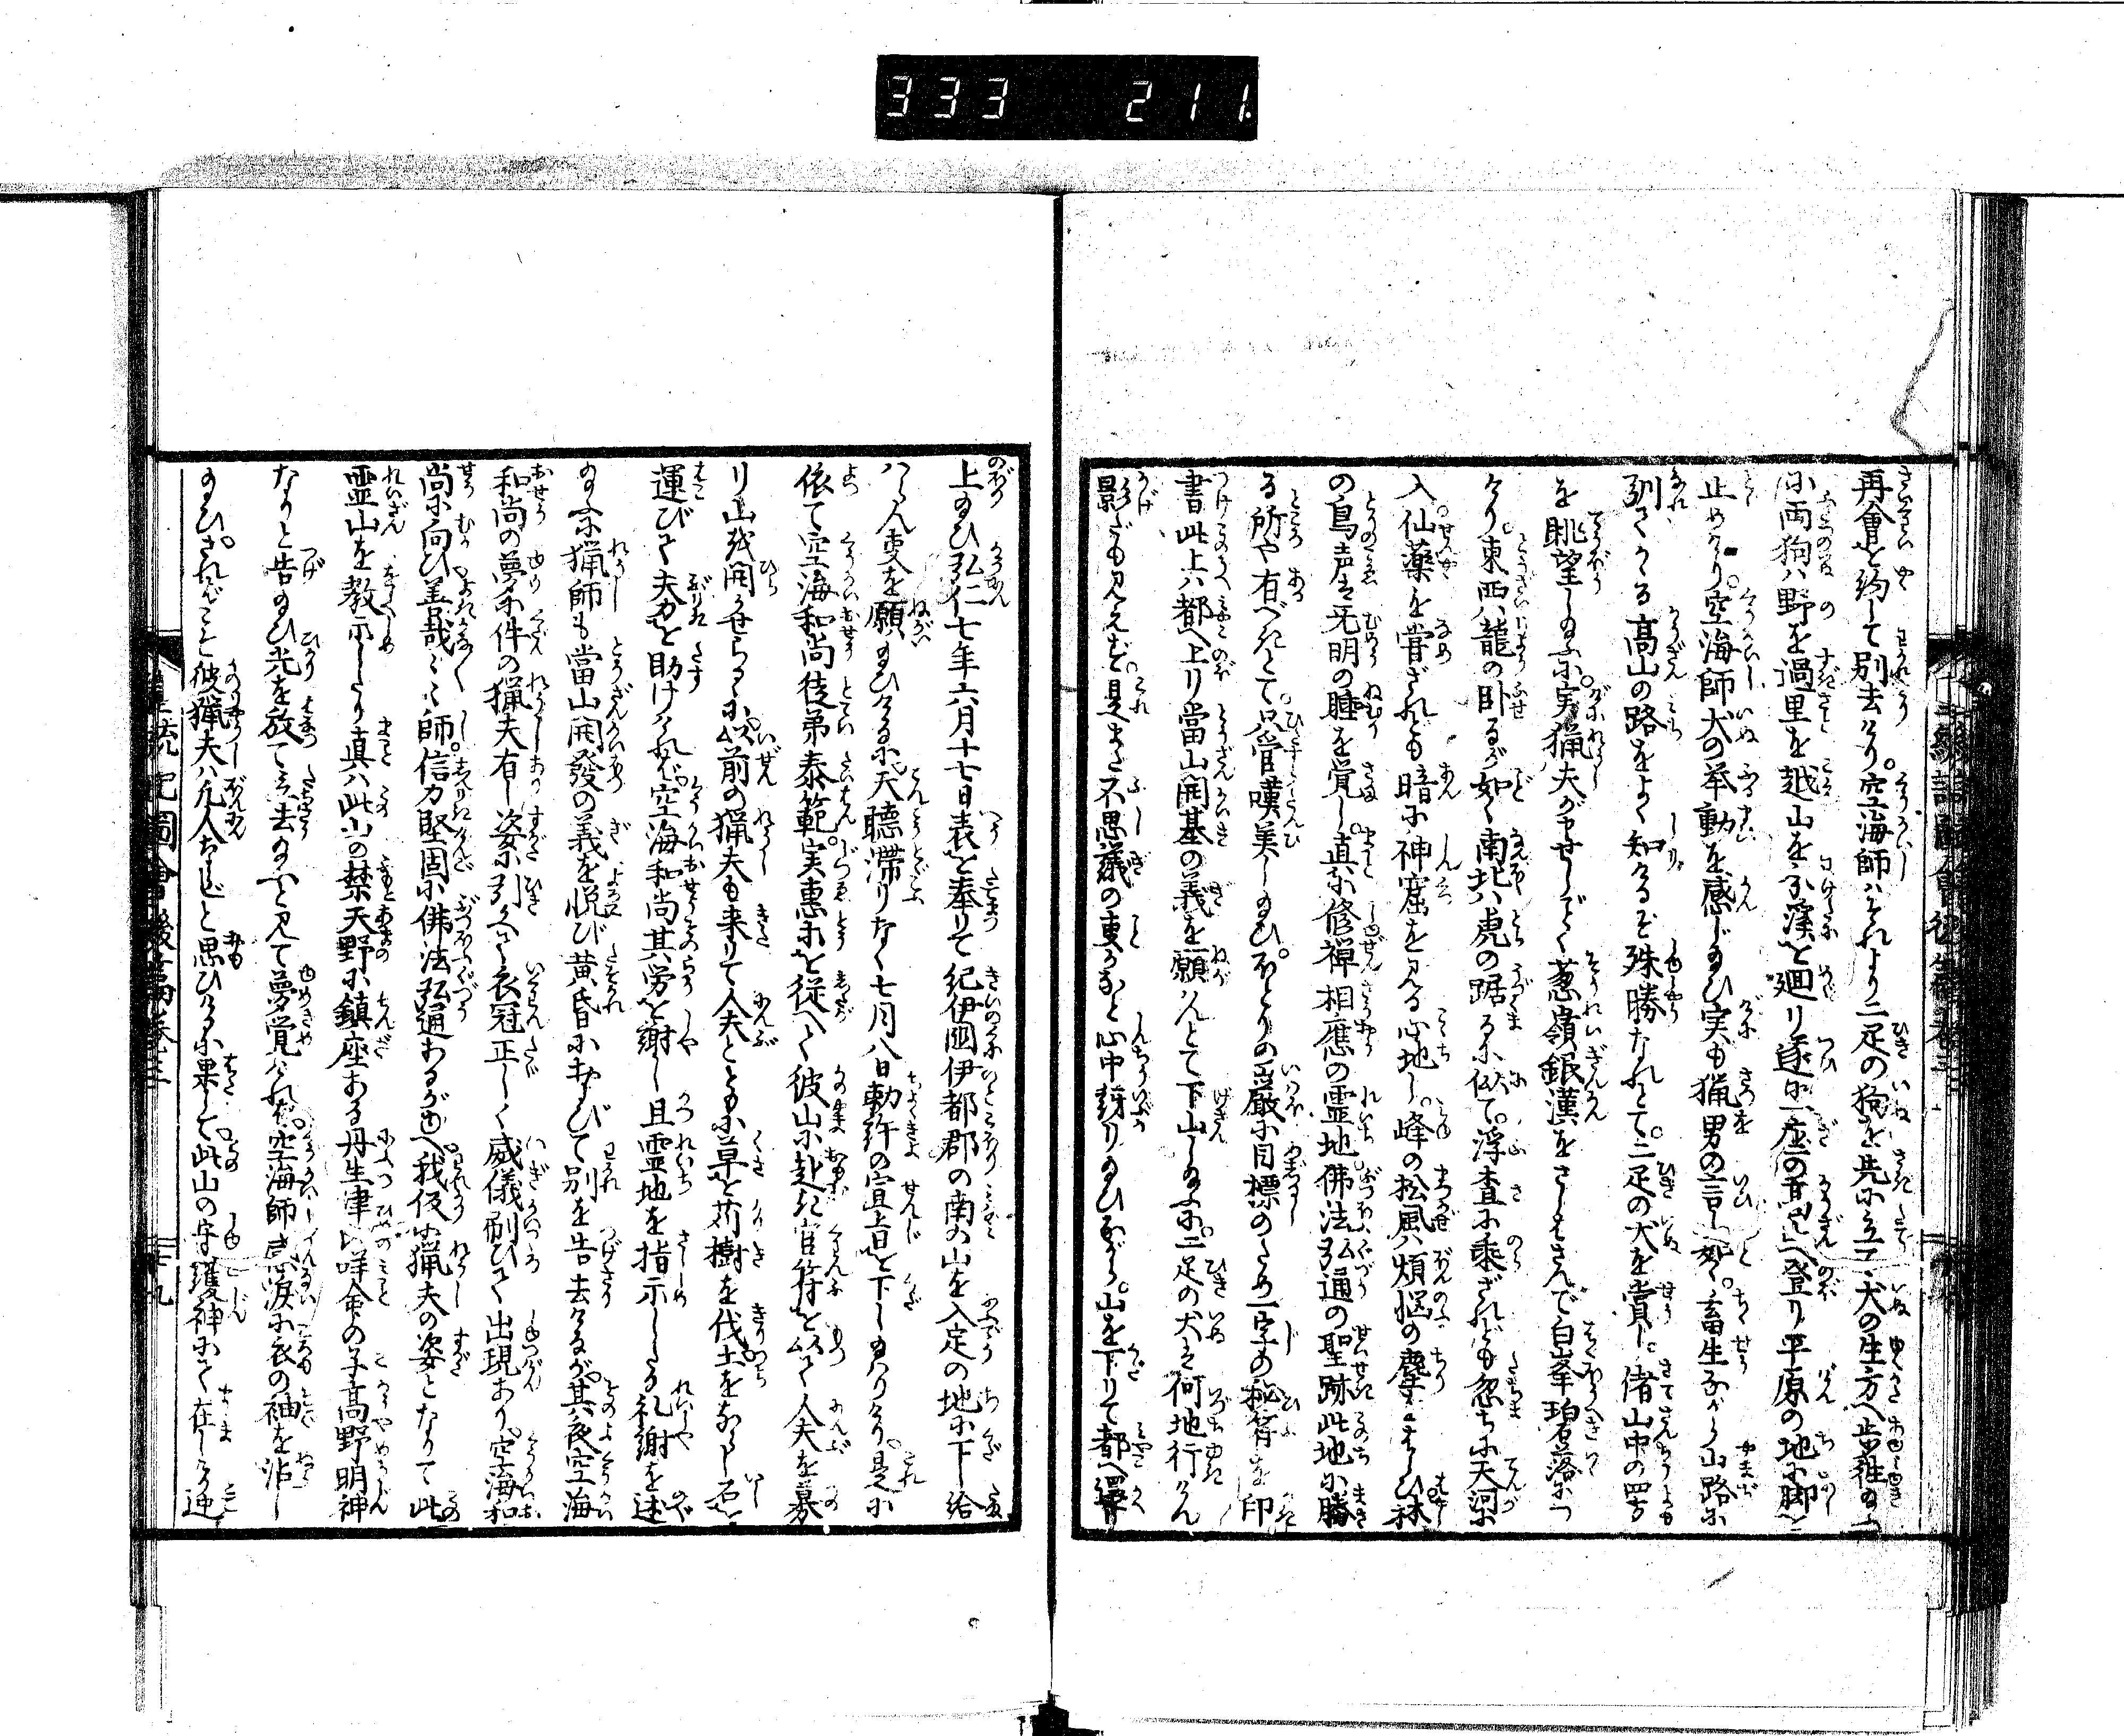 333 211
再會を約して別去けり。空海師ハそれより二疋の狗を先に立て犬の生方へ
に両狗ハ野を過里を越山をこえ渓を廻り遂に一座の高山へ登り平原の地に脚を
止めけり。空海師犬の挙動を感じ給ひ実も猟男の言し如く畜生ながら山路に
馴てかゝる高山の路をよく知けるぞ殊勝なれとて。二疋の犬を賞し。偖山中の四方
を眺望し給ふに。実猟夫が申せしごとく葱嶺銀漢をさしはさんで白峯碧落につ
けり。東西ハ龍の臥るが如く南北ハ虎の踞るに似て。浮査に乗ざれども忽ちに天河に
入。仙薬を嘗ざれども暗に神窟を見る心地し。峰の松風ハ煩悩の塵をはらひ林
の鳥声ハ无明の睡を覚し。真に修禅相應の霊地。佛法弘通の聖跡此地に勝
る所や有べきとて。只管嘆美し給ひ。ほとりの巌に目標のため一字の秘符を印
書此上ハ都へ上り當山開基の義を願ハんとて下山し給ふに。二疋の犬ハ何地行けん
影だも見えず。是また不思議の事かなと心中訝り給ひながら。山を下りて都へ還り
上給ひ弘仁七年六月十七日表を奉りて紀伊國伊都郡の南の山を入定の地に下し給
ハらん事を願ハせ給ひけるに。天聴滞りなく七月八日勅許の宣旨を下し給ハりけり。是に
依て空海和尚徒弟泰範。実恵等を従へて彼山に赴き官符を以て人夫を募
り山を開かせらるゝに。以前の猟夫も来りて人夫とともに草を苅樹を伐土をならし石を
運びて夫力を助けけれバ。空海和尚其労を謝し且霊地を指示したる礼謝を述
給ふに猟師も當山開發の義を悦び黄昏におよびて別を告去けるが。其夜空海
和尚の夢に件の猟夫有し姿に引かへて衣冠正しく威儀刷ひて出現あり。空海和
尚に向ひ善哉〻〻師。信力堅固に佛法弘通あるがゆへ。我仮に猟夫の姿となりて此
霊山を教示したり真ハ此山の禁天野に鎮座ある丹生津比咩命の子高野明神
なりと告給ひ光を放て立去給ふと見て夢覚けれバ。空海師感涙に衣の袖を沾し
給ひ。さればこそ彼猟夫ハ凡人ならじと思ひけるに果して此山の守護神にて在しける